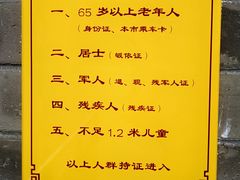 一、65 岁以上老年人
（身份证、本市乘车卡）
二、居士（皈依证）
三、军人（退、现、残军人证）
四、残疾人（残疾证）
五、不足 1.2 米儿童
以上人群持证进入